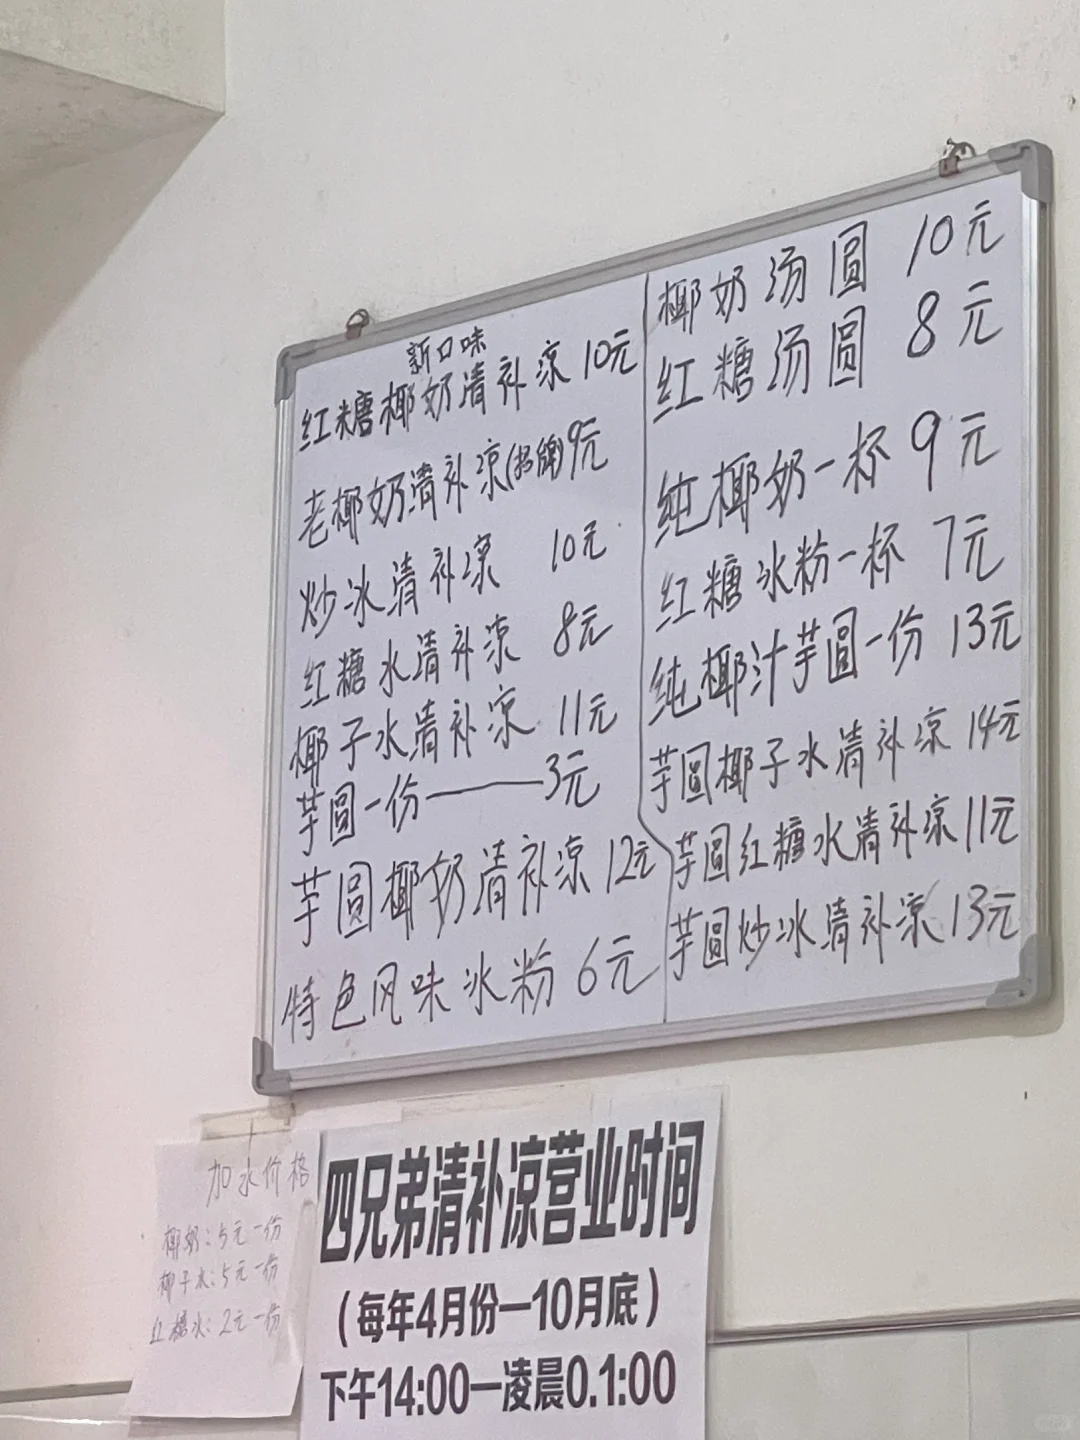 新口味
红糖椰奶清补凉 10元
老椰奶清补凉(招牌)9元
炒冰清补凉 10元
红糖水清补凉 8元
椰子水清补凉 11元
芋圆一份——3元
芋圆椰奶清补凉 12元
特色风味冰粉 6元
椰奶汤圆 10元
红糖汤圆 8元
纯椰奶一杯 9元
红糖冰粉一杯 7元
纯椰汁芋圆一份 13元
芋圆椰子水清补凉 14元
芋圆红糖水清补凉 11元
芋圆炒冰清补凉 13元
加水价格
椰奶:5元一份
椰子水:5元一份
红糖水:2元一份
四兄弟清补凉营业时间
(每年4月份一10月底)
下午14:00一凌晨0.1:00